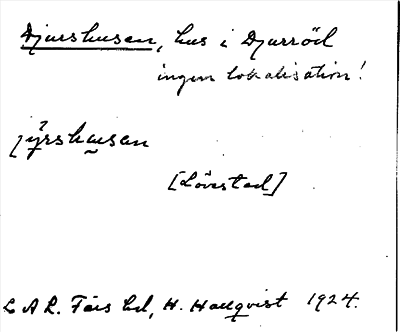 Djurshusen, hus i Djurröd
ingen lokalisation!
[Lövestad]
L A L. Färs hd, H. Hallqvist 1924.